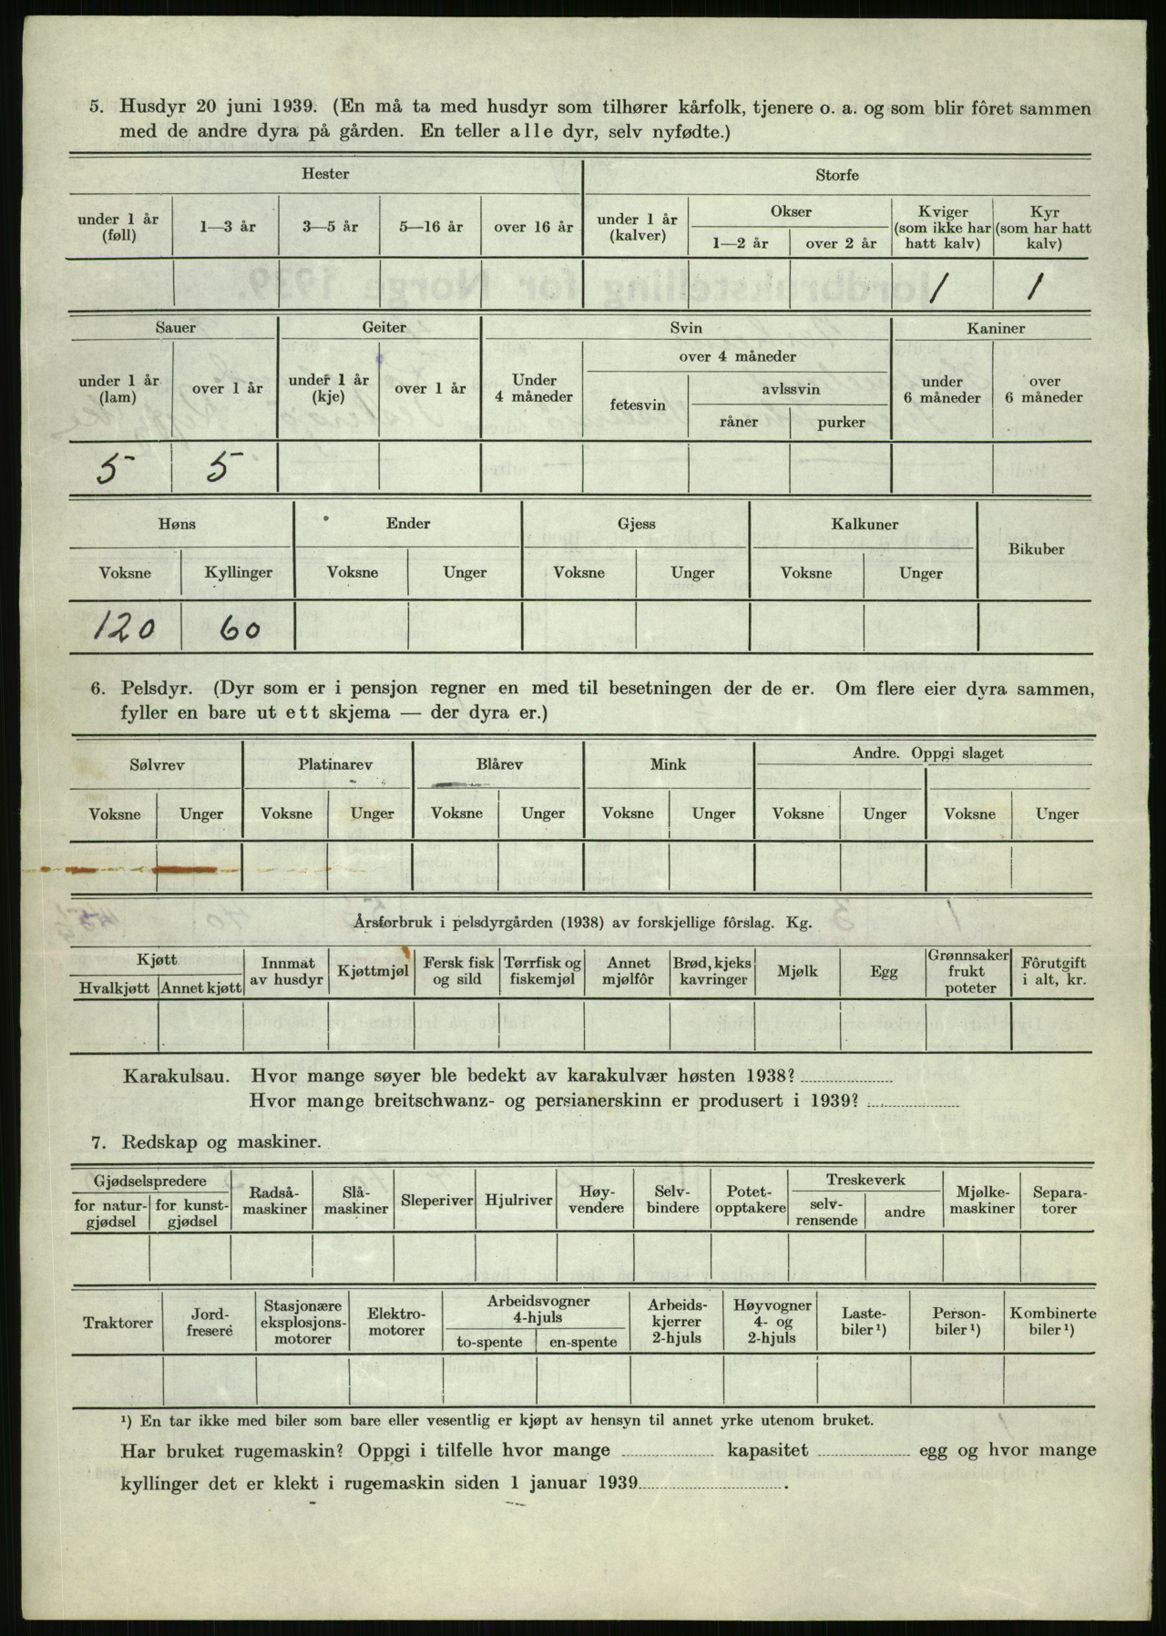 5. Husdyr 20 juni 1939. (En må ta med husdyr som tilhører kårfolk, tjenere o. a. og som blir fôret sammen
med de andre dyra på gården. En teller alle dyr, selv nyfødte.)
Hester Storfe
under 1 år (føll) 1—3 år 3—5 år 5—16 år over 16 år under 1 år (kalver) Okser 1—2 år over 2 år Kviger (som ikke har hatt kalv) Kyr (som har hatt kalv)
1 1
Sauer Geiter Svin Kaniner
under 1 år (lam) over 1 år under 1 år (kje) over 1 år Under 4 måneder over 4 måneder fetesvin avlssvin råner purker under 6 måneder over 6 måneder
5 5
Høns Ender Gjess Kalkuner Bikuber
Voksne Kyllinger Voksne Unger Voksne Unger Voksne Unger
120 60
6. Pelsdyr. (Dyr som er i pensjon regner en med til besetningen der de er. Om flere eier dyra sammen,
fyller en bare ut ett skjema — der dyra er.)
Sølvrev Platinarev Blårev Mink Andre. Oppgi slaget
Voksne Unger Voksne Unger Voksne Unger Voksne Unger Voksne Unger Voksne Unger
Årsforbruk i pelsdyrgården (1938) av forskjellige fôrslag. Kg.
Kjøtt Hvalkjøtt Annet kjøtt Innmat av husdyr Kjøttmjøl Fersk fisk og sild Tørrfisk og fiskemjøl Annet mjølfôr Brød, kjeks kavringer Mjølk Egg Grønnsaker frukt poteter Fôrutgift i alt, kr.
Karakulsau. Hvor mange søyer ble bedekt av karakulvær høsten 1938?
Hvor mange breitschwanz- og persianerskinn er produsert i 1939?
7. Redskap og maskiner.
Gjødselspredere for natur-gjødsel for kunst-gjødsel Radså-maskiner Slå-maskiner Sleperiver Hjulriver Høy-vendere Selv-bindere Potet-opptakere Treskeverk selv-rensende andre Mjølke-maskiner Separa-torer
Traktorer Jord-freseré Stasjonære eksplosjons-motorer Elektro-motorer Arbeidsvogner 4-hjuls to-spente en-spente Arbeids-kjerrer 2-hjuls Høyvogner 4- og 2-hjuls Laste-biler¹) Person-biler¹) Kombinerte biler¹)
¹) En tar ikke med biler som bare eller vesentlig er kjøpt av hensyn til annet yrke utenom bruket.
Har bruket rugemaskin? Oppgi i tilfelle hvor mange kapasitet egg og hvor mange
kyllinger det er klekt i rugemaskin siden 1 januar 1939 .